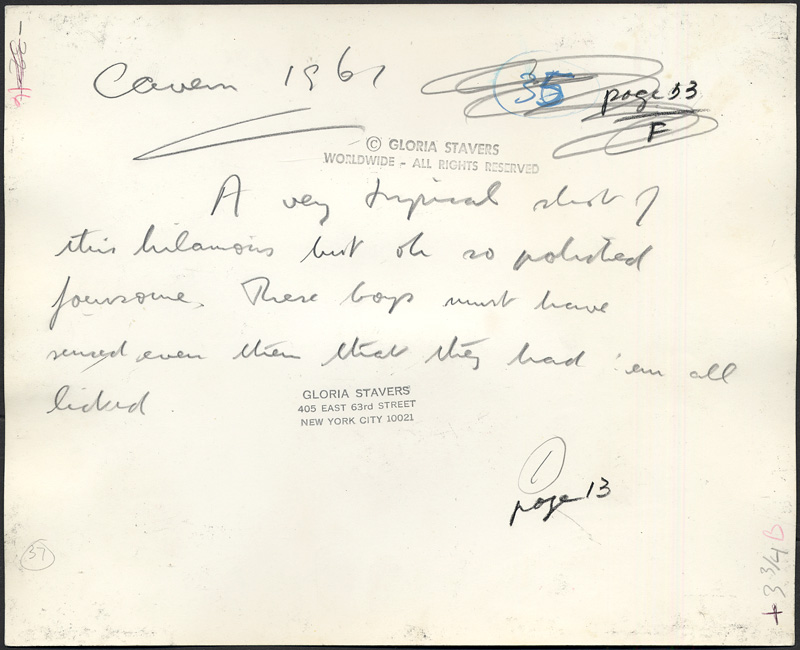 Cavern 1961
35
page 53
F
© GLORIA STAVERS
WORLDWIDE - ALL RIGHTS RESERVED
A very typical shot of
this hilarious but oh so polished
foursome. These boys must have
sensed even then that they had 'em all
licked
GLORIA STAVERS
405 EAST 63rd STREET
NEW YORK CITY 10021
1
page 13
37
+ 3 3/4 B